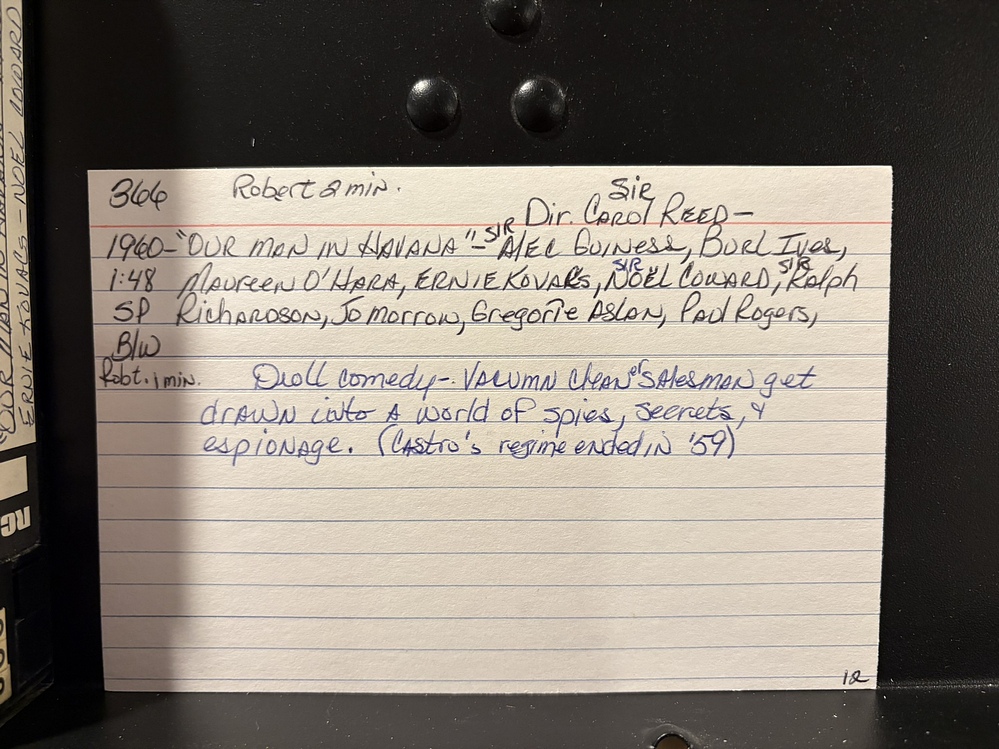 OUR MAN IN HAVANA
ERNIE KOVACS - NOEL COWARD
RC
366 Robert 2 min. Sir
Dir. Carol Reed -
1960 - "OUR MAN IN HAVANA" - SIR Alec Guiness, Burl Ives,
1:48 Maureen O'Hara, Ernie Kovacs, SIR Noël Coward, SIR Ralph
SP Richardson, Jo Morrow, Gregorie Aslan, Paul Rogers,
B/W
Robt. 1 min. Droll comedy - Vacumn Clean er Salesman get
drawn into a world of spies, secrets, &
espionage. (Castro's regime ended in '59)
12